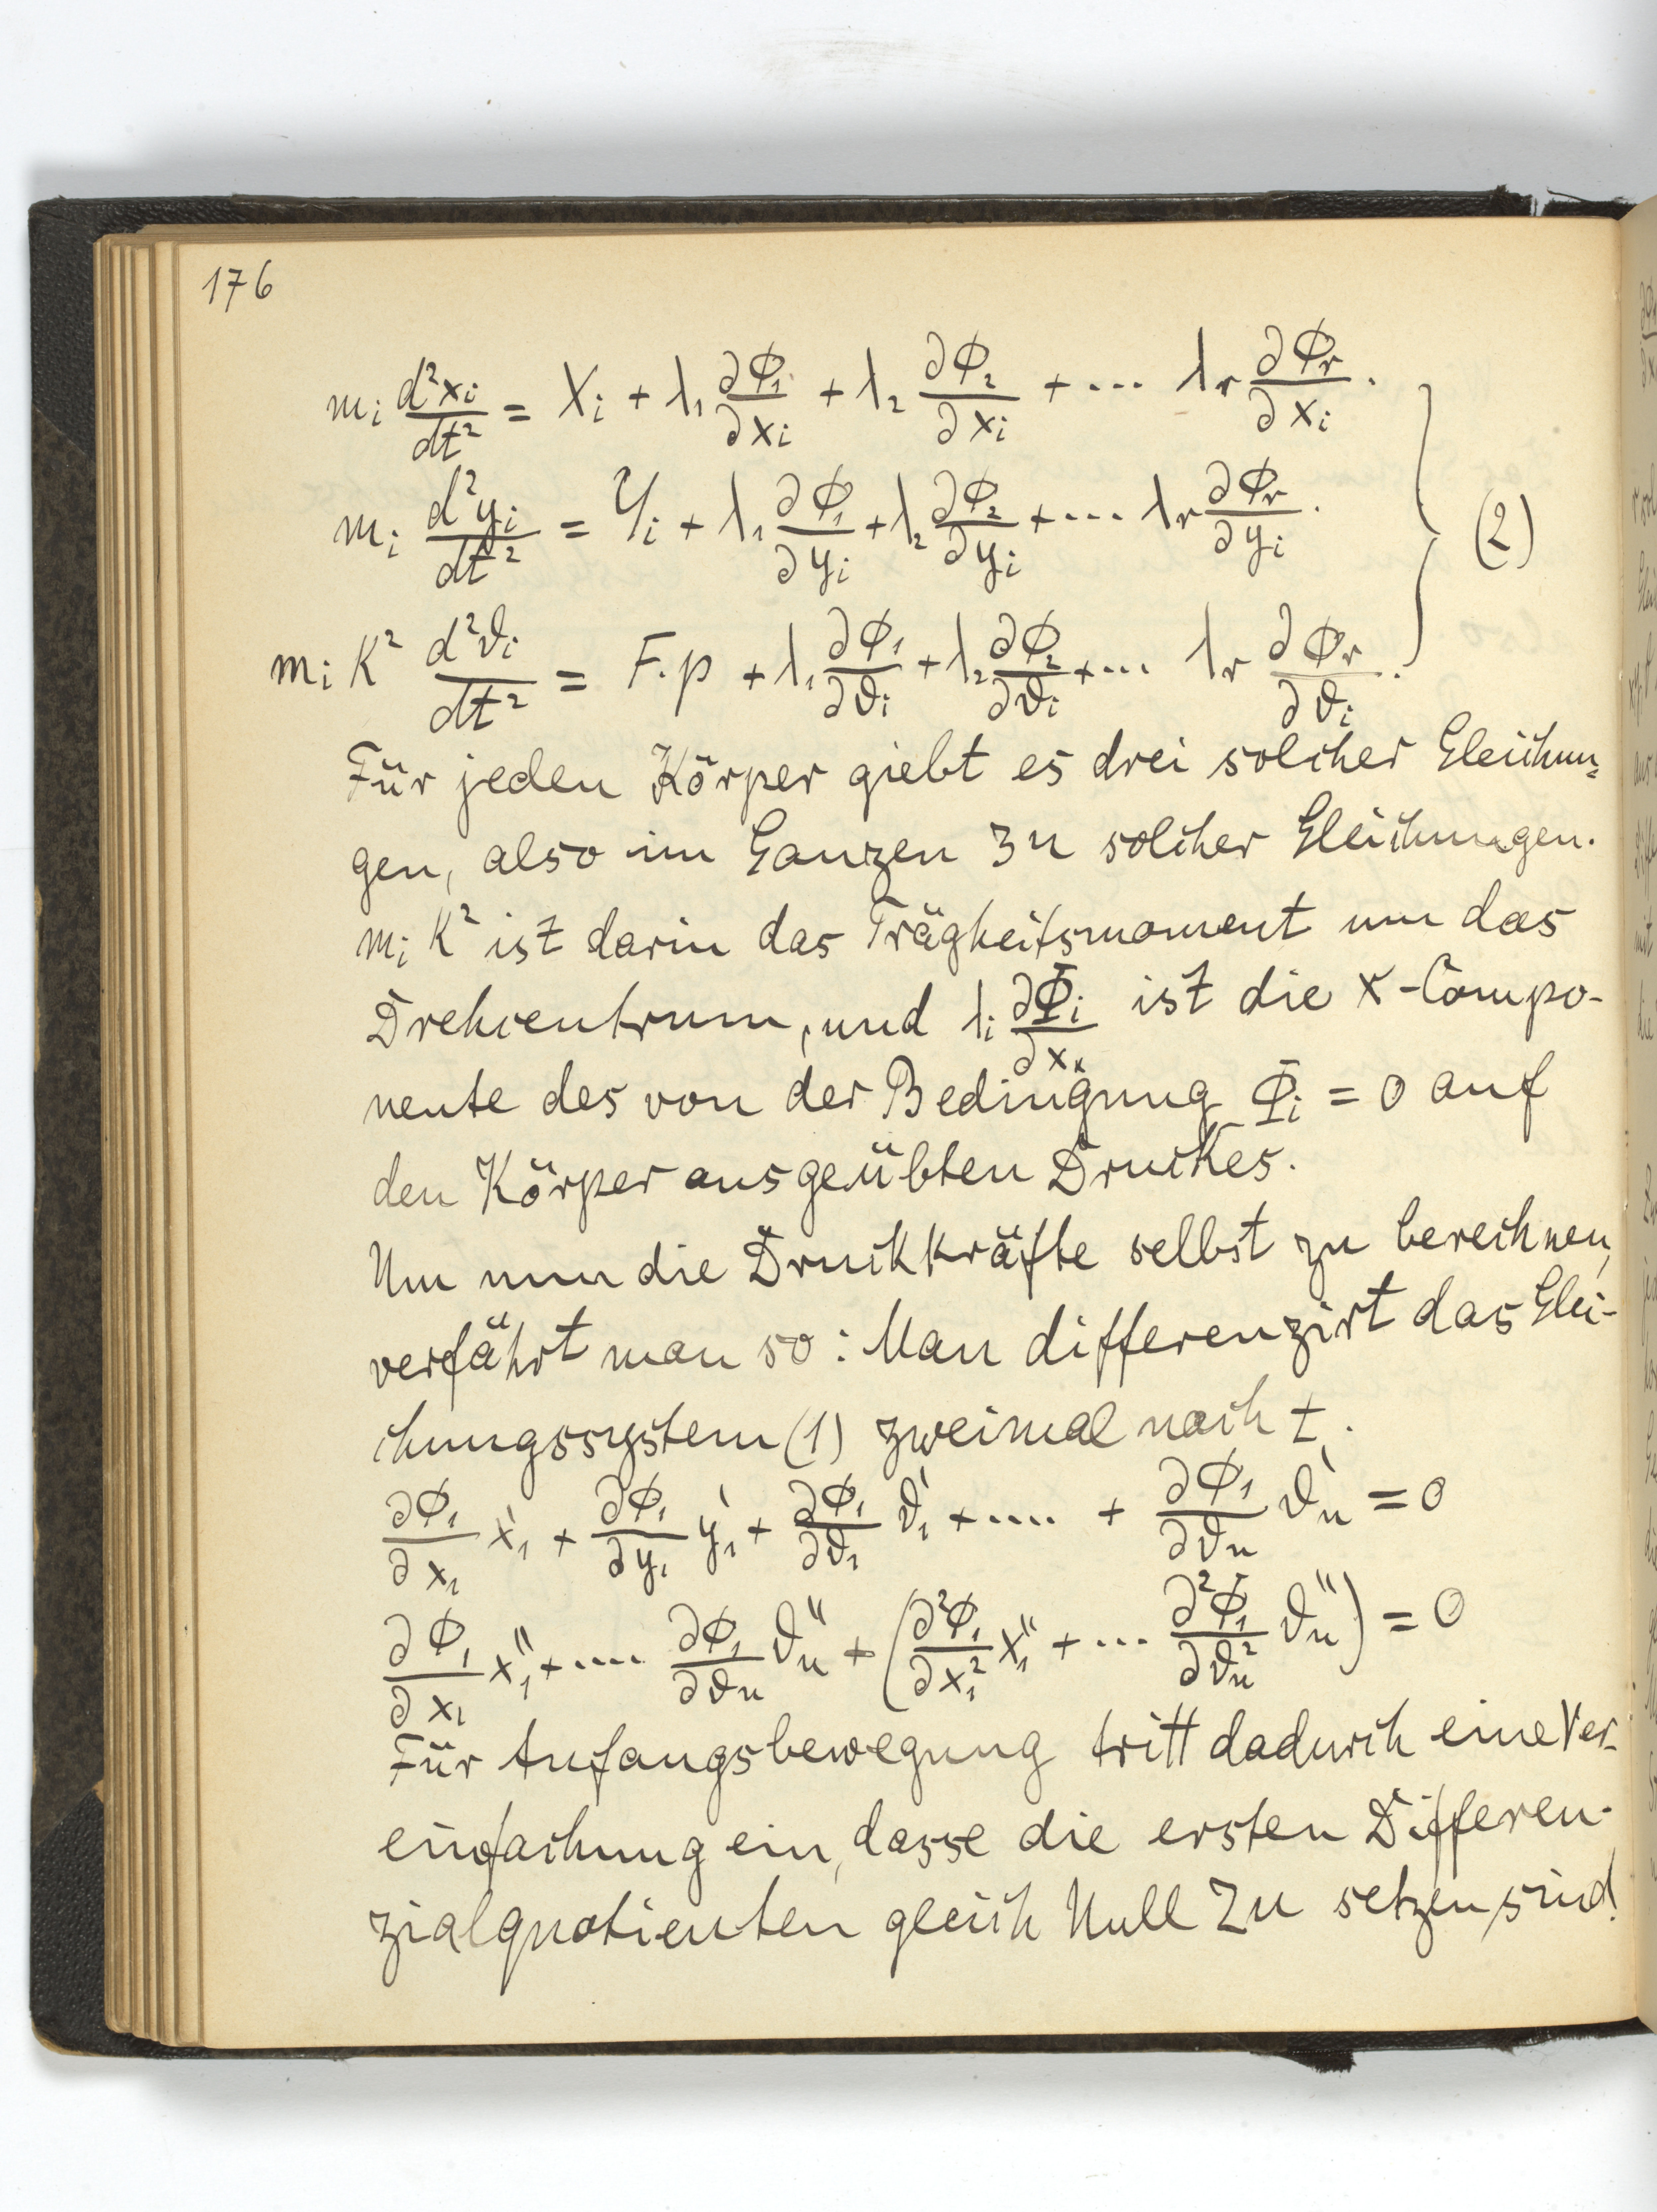 176
m_i d²x_i/dt² = X_i + λ₁ ∂Φ₁/∂x_i + λ₂ ∂Φ₂/∂x_i + ... λ_r ∂Φ_r/∂x_i .
m_i d²y_i/dt² = Y_i + λ₁ ∂Φ₁/∂y_i + λ₂ ∂Φ₂/∂y_i + ... λ_r ∂Φ_r/∂y_i . } (2)
m_i K² d²ϑ_i/dt² = F.p + λ₁ ∂Φ₁/∂ϑ_i + λ₂ ∂Φ₂/∂ϑ_i + ... λ_r ∂Φ_r/∂ϑ_i .
Für jeden Körper giebt es drei solcher Gleichun=
gen, also im Ganzen 3n solcher Gleichungen.
m_i K² ist darin das Trägheitsmoment um das
Drehcentrum, und λ_i ∂Φ_i/∂x_k ist die x-Compo-
nente des von der Bedingung Φ_i = 0 auf
den Körper ausgeübten Druckes.
Um nun die Druckkräfte selbst zu berechnen,
verfährt man so: Man differenzirt das Glei-
chungssystem (1) zweimal nach t.
∂Φ₁/∂x₁ x₁' + ∂Φ₁/∂y₁ y₁' + ∂Φ₁/∂ϑ₁ ϑ₁' + .... + ∂Φ₁/∂ϑ_n ϑ_n' = 0
∂Φ₁/∂x₁ x₁'' + .... ∂Φ₁/∂ϑ_n ϑ_n'' + (∂²Φ₁/∂x₁² x₁'' + ... ∂²Φ₁/∂ϑ_n² ϑ_n'') = 0
Für Anfangsbewegung tritt dadurch eine Ver-
einfachung ein, dasse die ersten Differen-
zialquotienten gleich Null zu setzen sind.